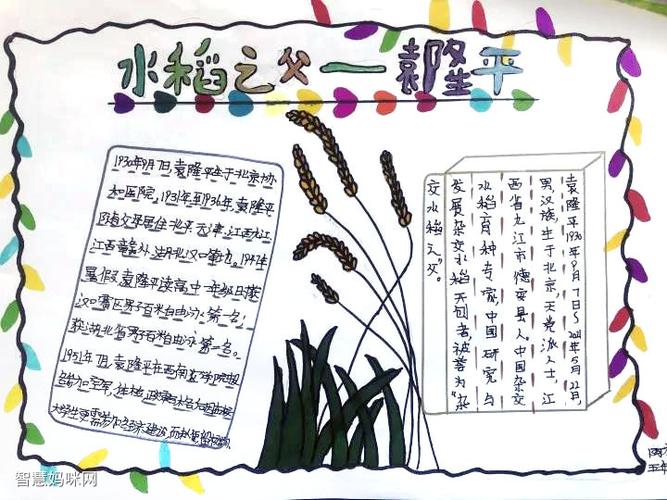 水稻之父——袁隆平
1930年9月7日袁隆平生于北京协
和医院。1931年至1936年,袁隆平
随父母居住北平、天津、江西九江
江西 湖北汉口等地。1947年
暑假袁隆平读高中一年级日获
汉口赛区男子百米自由泳第一名,
获湖北省男子百米自由泳第一名。
1951年 袁隆平在西南农学院
大学生更需 经济建设
袁隆平1930年9月7日5 2021年5月22日,
男汉族,生于北京,无党派人士,江
西省九江市德安县人。中国杂交
水稻育种专家,中国研究与
发展杂交水稻开创者,被誉为“杂
交水稻之父”。
智慧妈咪网